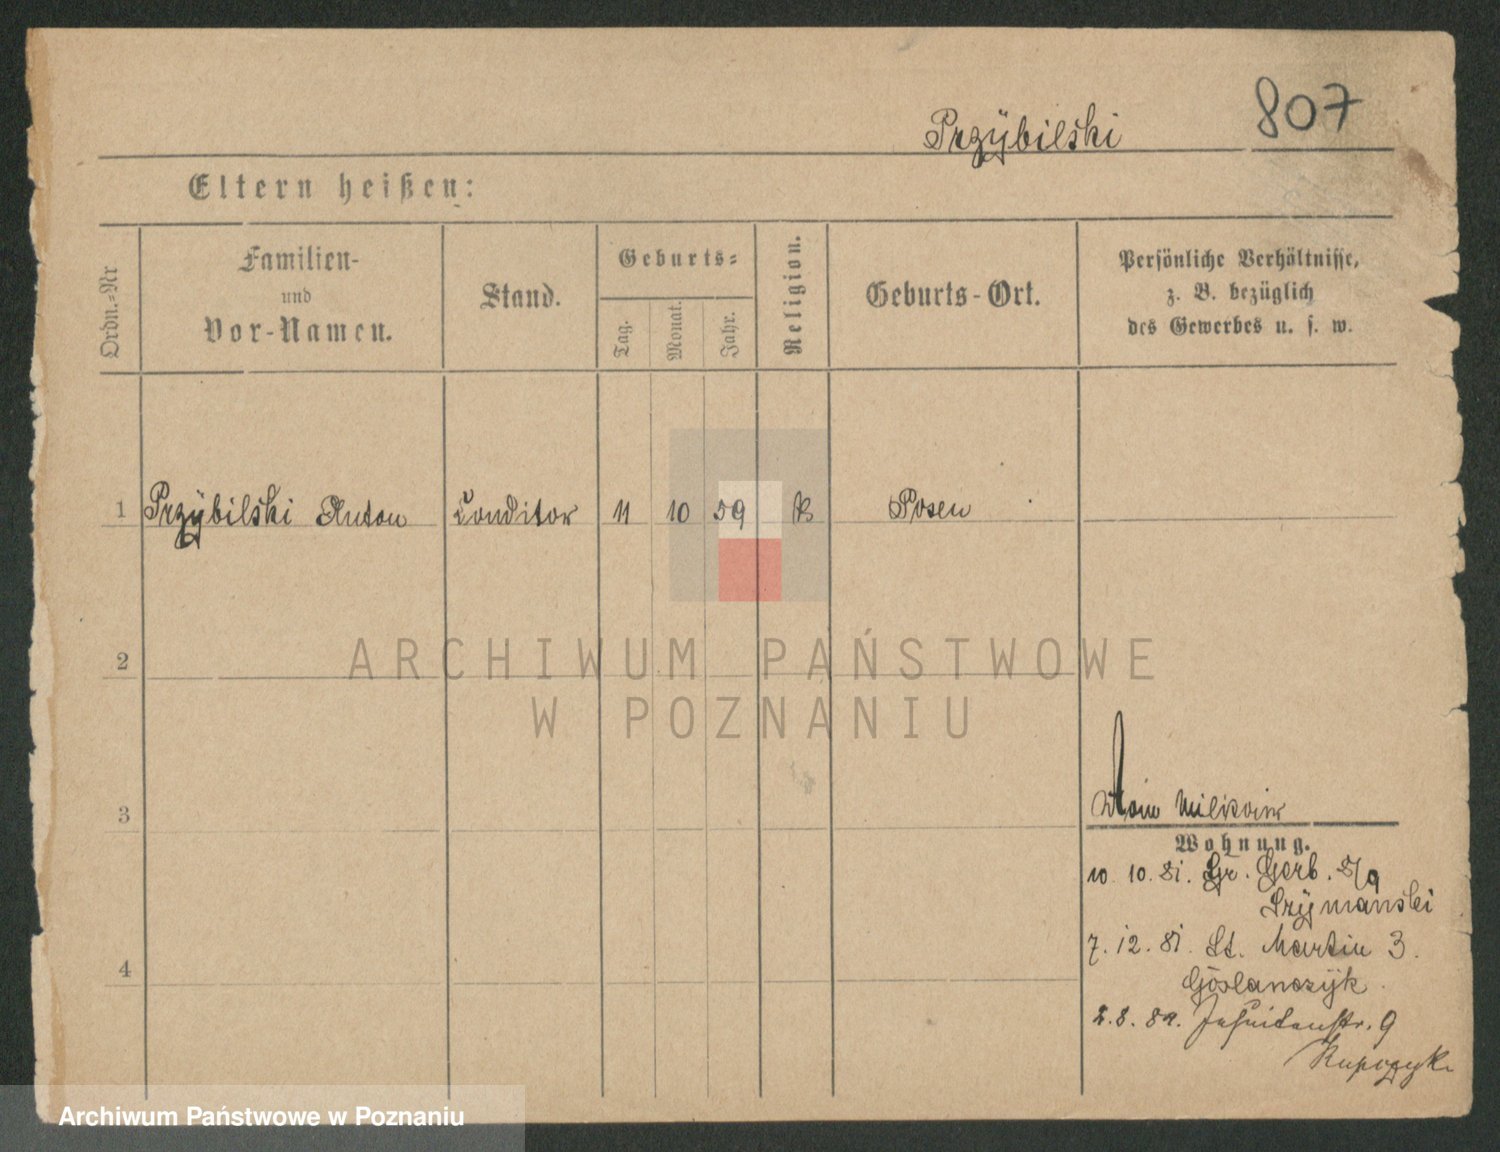 Przÿbilski
807
Eltern heißen:
Ordn.-Nr
Familien-
und
Vor-Namen.
Stand.
Geburts-
Tag.
Monat.
Jahr.
Religion.
Geburts-Ort.
Persönliche Verhältnisse,
z. B. bezüglich
des Gewerbes u. s. w.
1 Przÿbilski Anton Conditor 11 10 59 K Posen
2
ARCHIWUM PAŃSTWOWE
W POZNANIU
3
Wohnung.
10. 10. 81. Gr. Gerb. 8/9
Szÿmanski
4
7. 12. 81. St. Martin 3.
Goslanczÿk.
2. 8. 82. Jesuitenstr. 9
Kupczyk
Archiwum Państwowe w Poznaniu